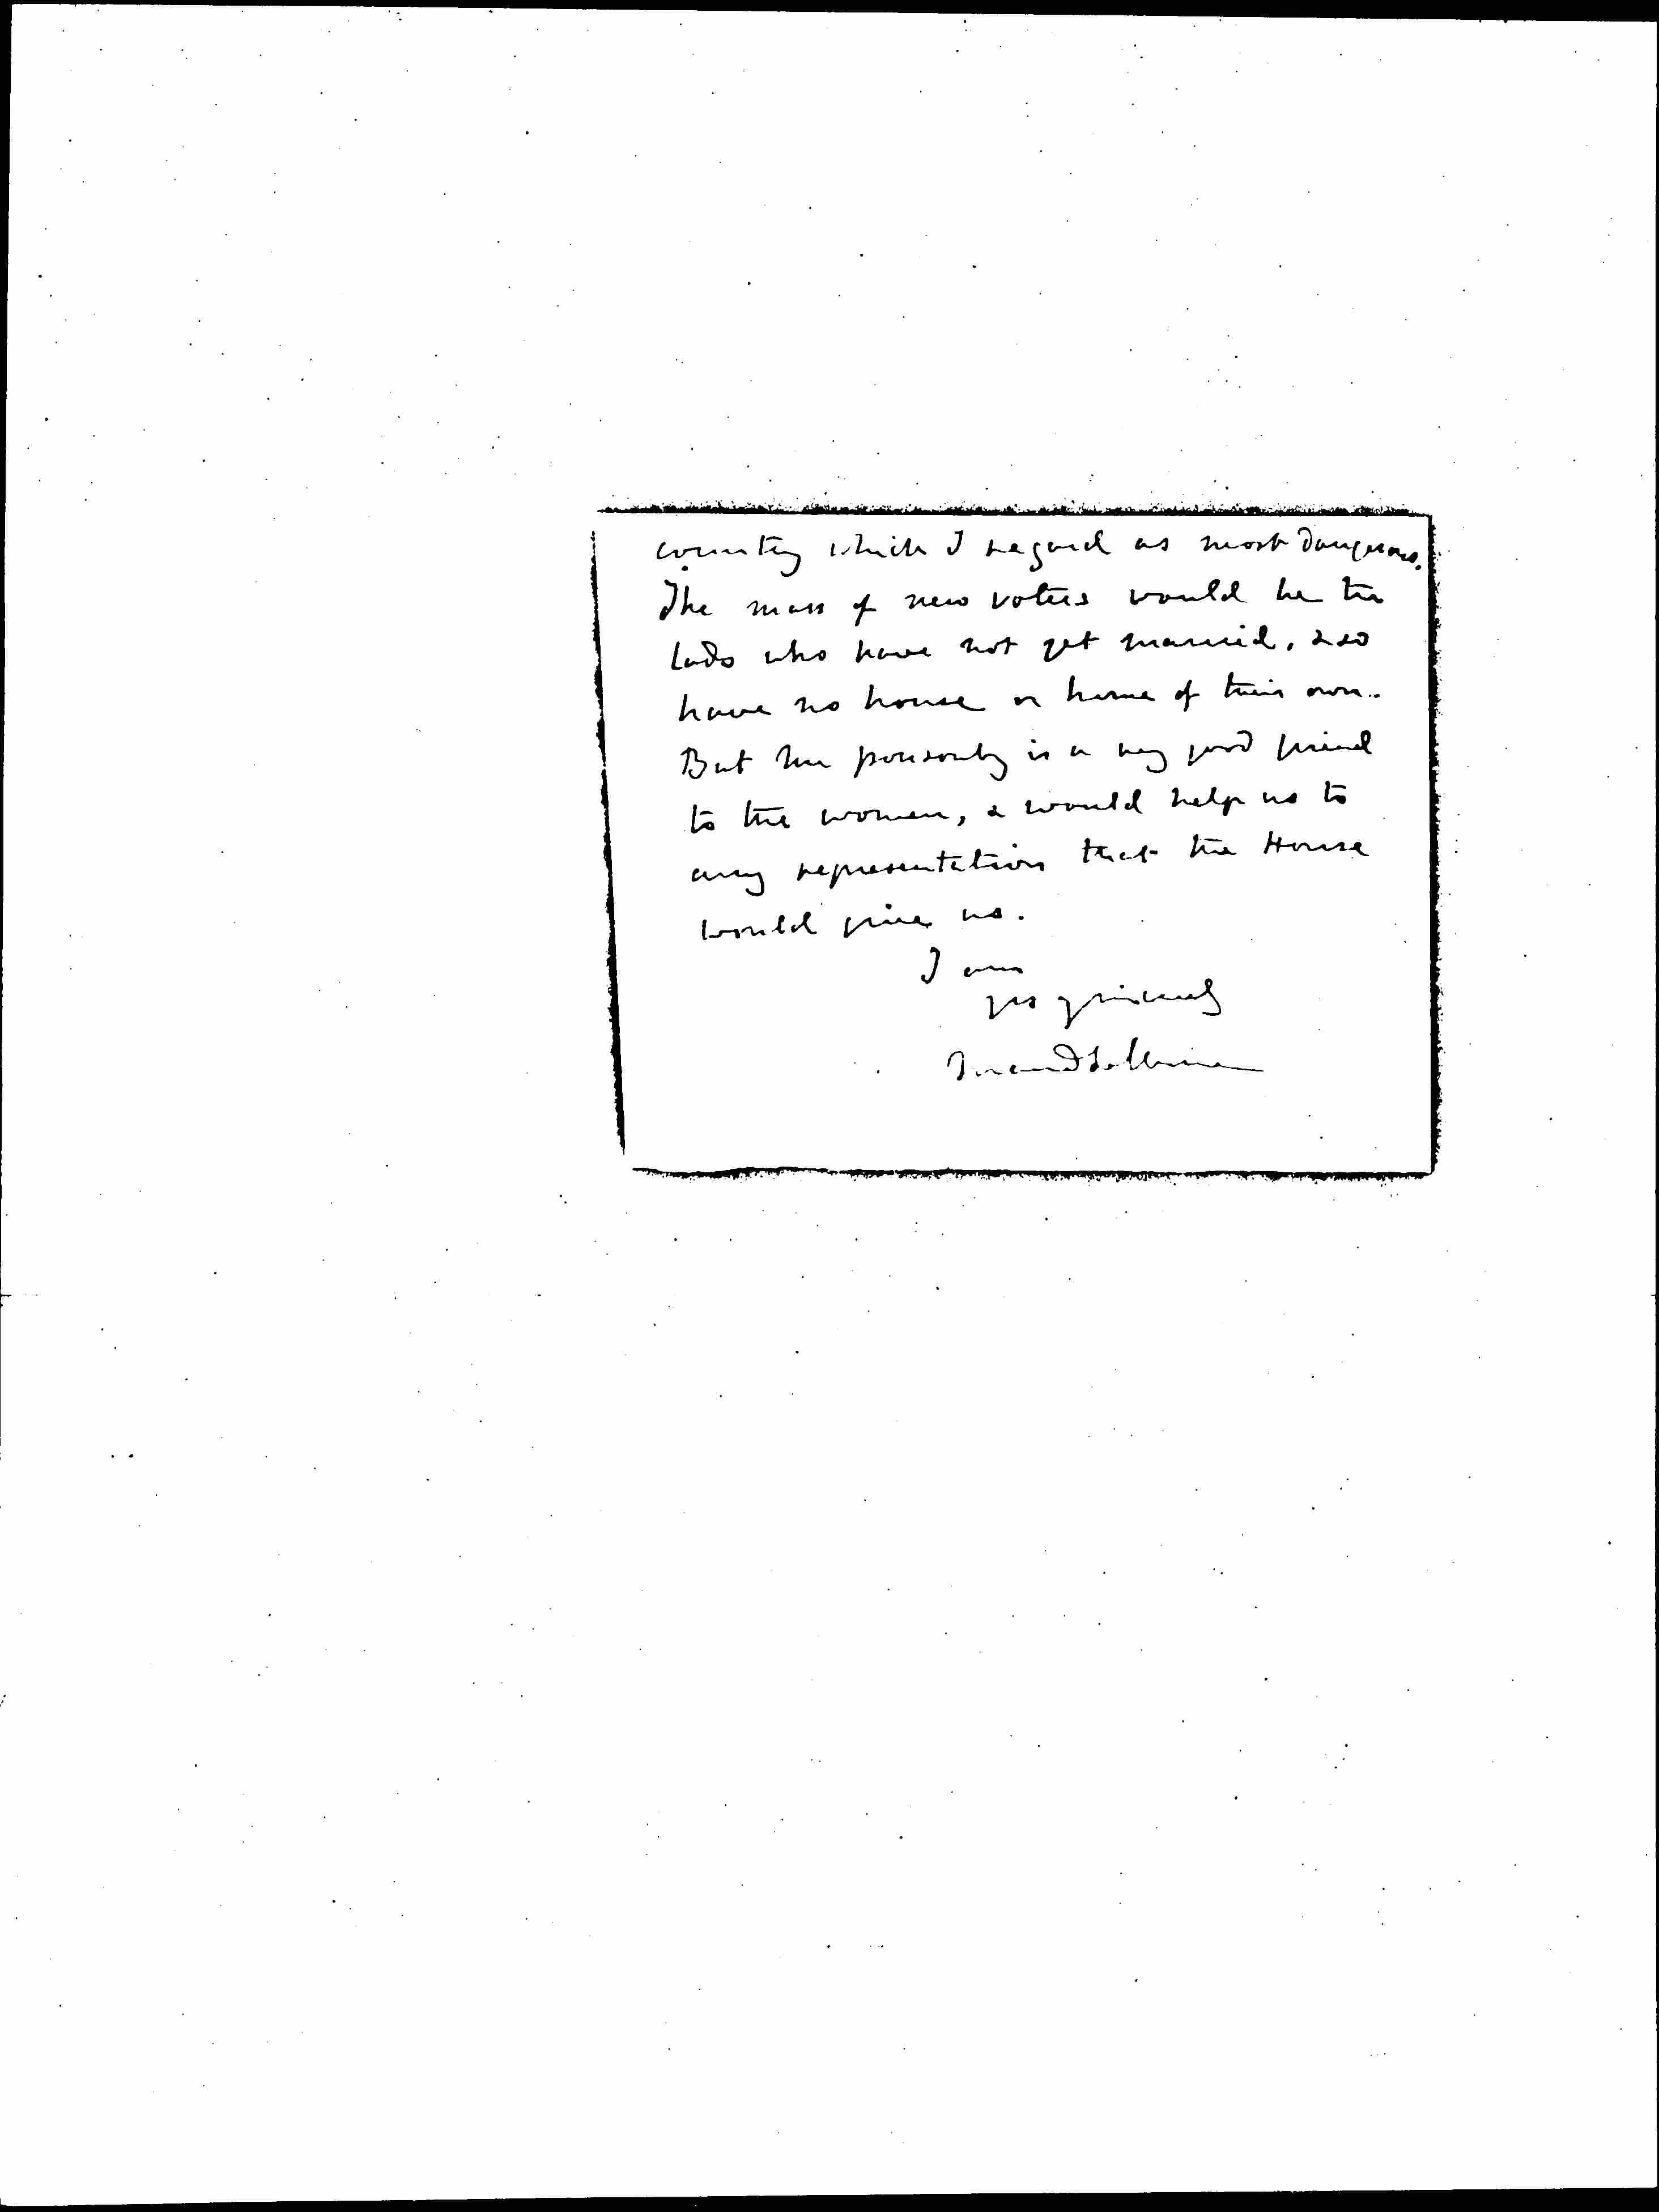 country which I regard as most dangerous.
The mass of new voters would be the
lads who have not yet married, & so
have no house or home of their own.
But Mr Ponsonby is a very good friend
to the women, & would help us to
any representation that the House
would give us.
I am
yrs sincerely